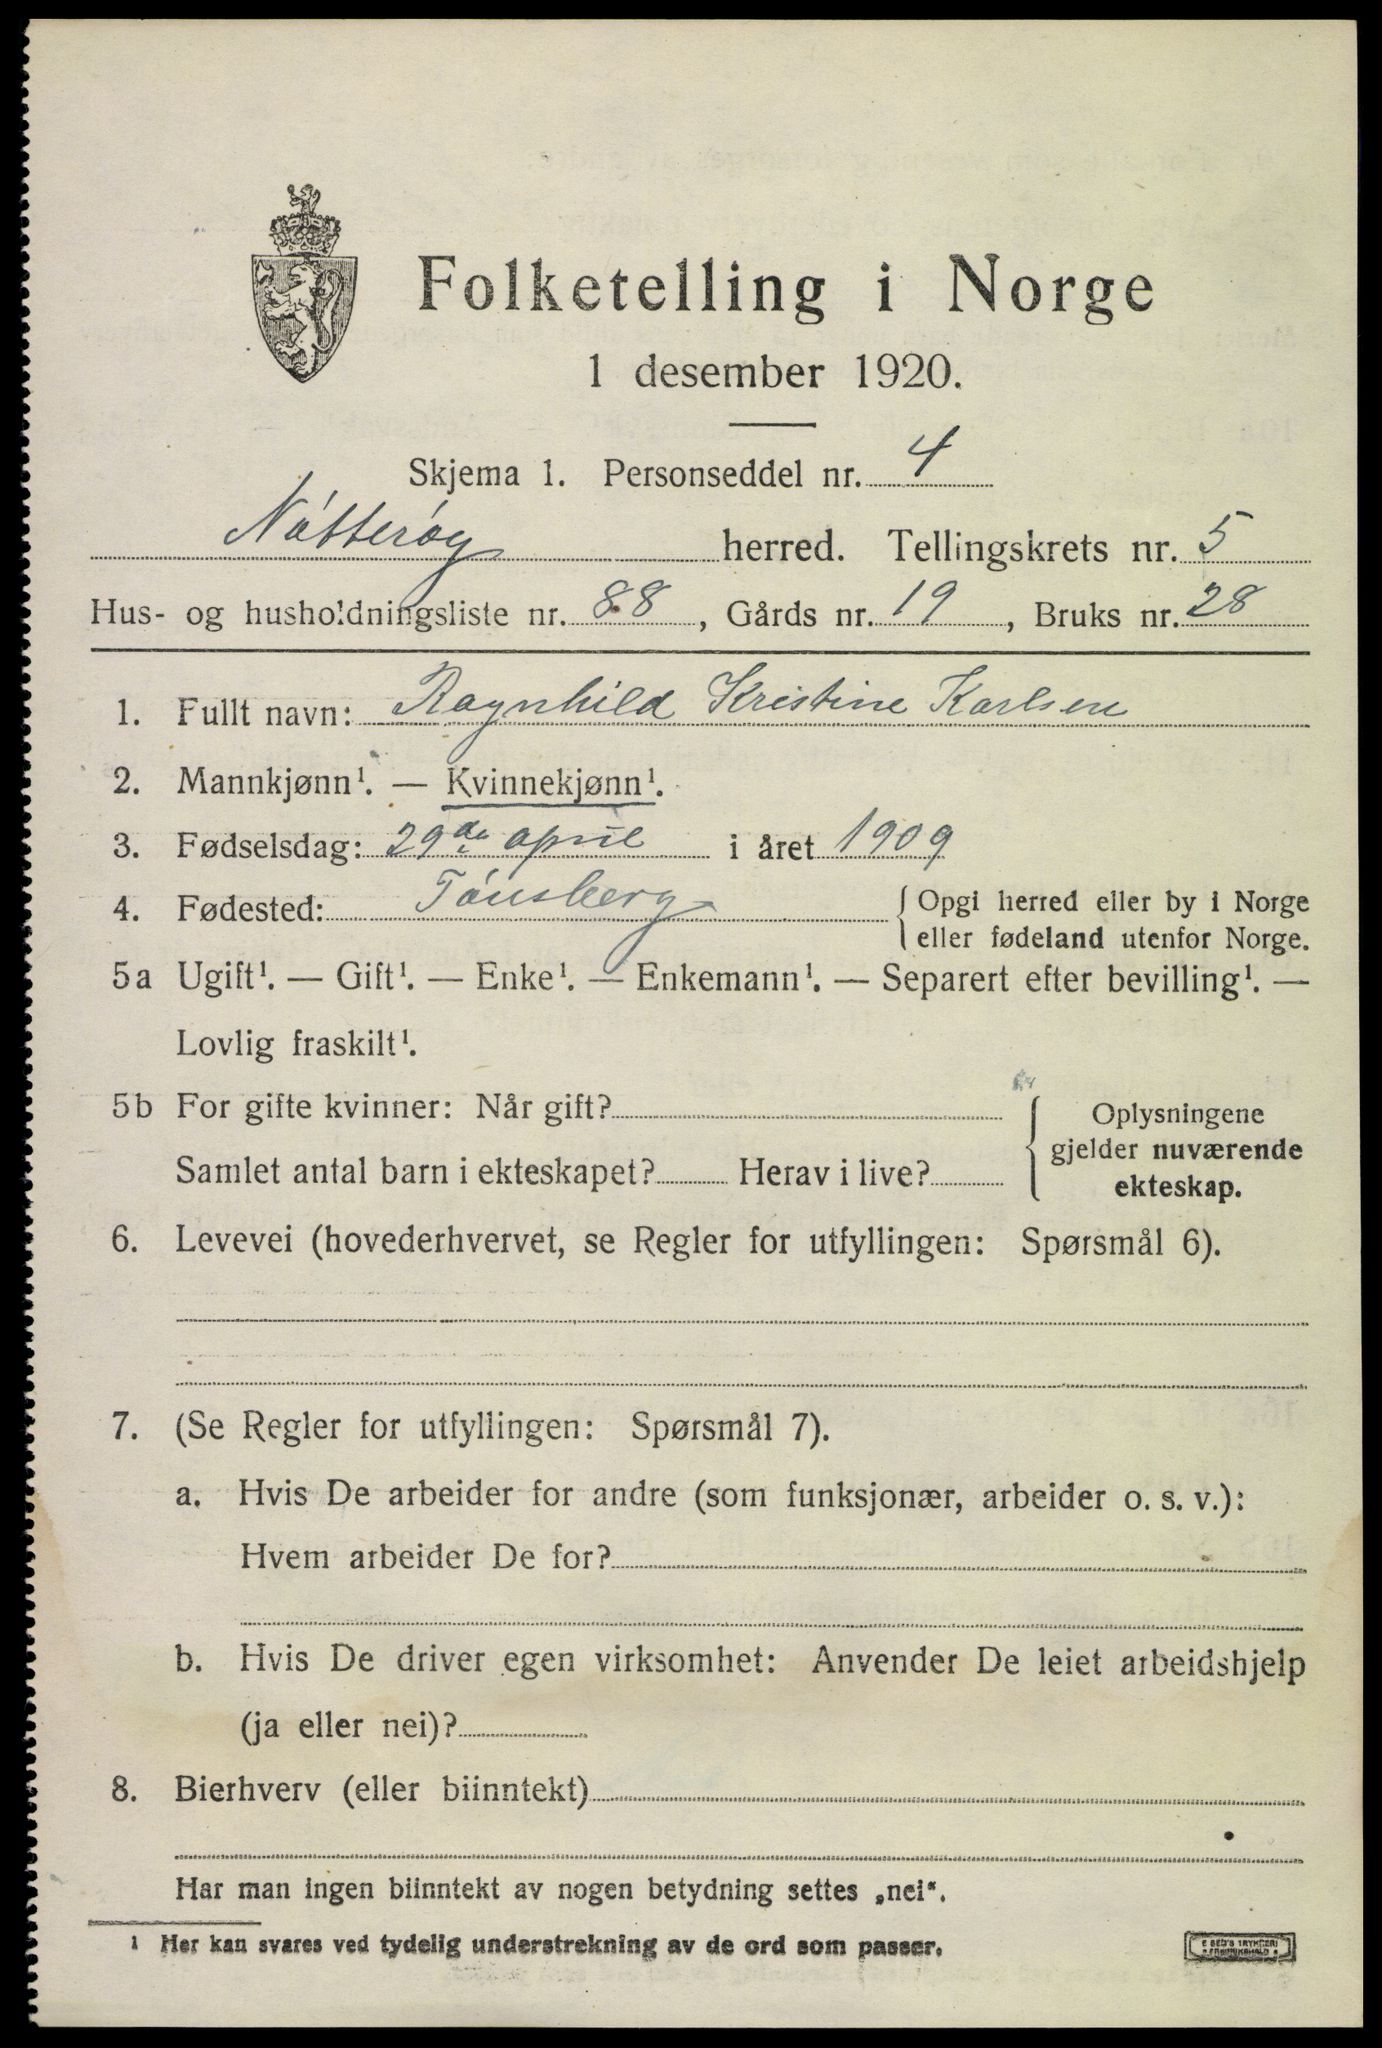 Folketelling i Norge
1 desember 1920.
Skjema 1. Personseddel nr. 4
Nøtterøy herred. Tellingskrets nr. 5
Hus- og husholdningsliste nr. 88, Gårds nr. 19, Bruks nr. 28
1. Fullt navn: Ragnhild Kristine Karlsen
2. Mannkjønn¹. — Kvinnekjønn¹.
3. Fødselsdag: 29de april i året 1909
4. Fødested: Tønsberg { Opgi herred eller by i Norge
eller fødeland utenfor Norge.
5a Ugift¹. — Gift¹. — Enke¹. — Enkemann¹. — Separert efter bevilling¹. —
Lovlig fraskilt¹.
5b For gifte kvinner: Når gift? { Oplysningene
gjelder nuværende
Samlet antal barn i ekteskapet? Herav i live? ekteskap.
6. Levevei (hovederhvervet, se Regler for utfyllingen: Spørsmål 6).
7. (Se Regler for utfyllingen: Spørsmål 7).
a. Hvis De arbeider for andre (som funksjonær, arbeider o. s. v.):
Hvem arbeider De for?
b. Hvis De driver egen virksomhet: Anvender De leiet arbeidshjelp
(ja eller nei)?
8. Bierhverv (eller biinntekt)
Har man ingen biinntekt av nogen betydning settes „nei".
¹ Her kan svares ved tydelig understrekning av de ord som passer.